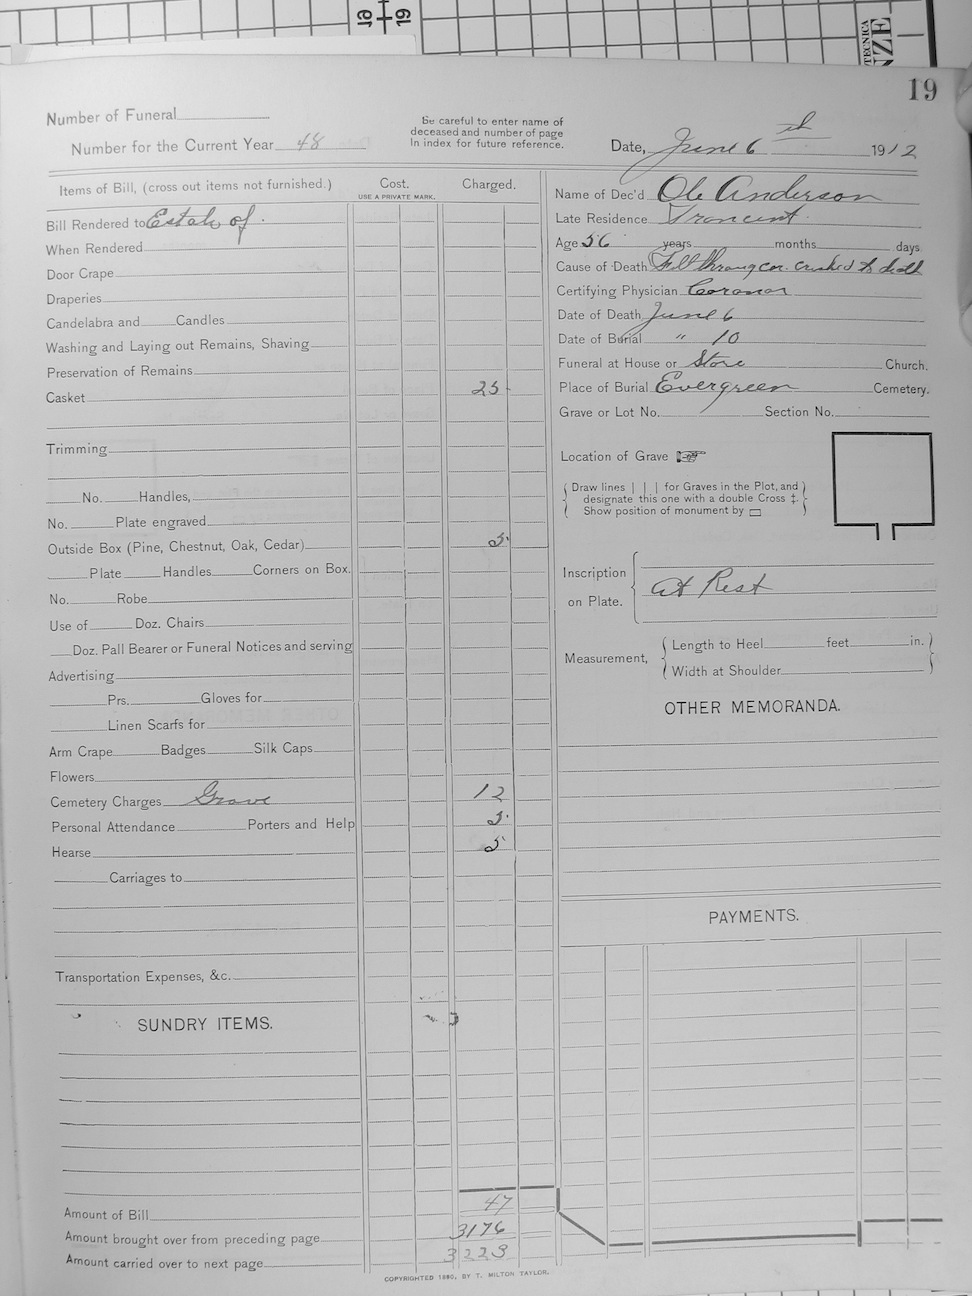 19
Number of Funeral
Number for the Current Year 48
Be careful to enter name of
deceased and number of page
In index for future reference.
Date, June 6th 1912
Items of Bill, (cross out items not furnished.)
Cost.
USE A PRIVATE MARK.
Charged.
Bill Rendered to Estate of
When Rendered
Door Crape
Draperies
Candelabra and Candles
Washing and Laying out Remains, Shaving
Preservation of Remains
Casket 25
Trimming
No. Handles,
No. Plate engraved
Outside Box (Pine, Chestnut, Oak, Cedar) 5
Plate Handles Corners on Box.
No. Robe
Use of Doz. Chairs
Doz. Pall Bearer or Funeral Notices and serving
Advertising
Prs. Gloves for
Linen Scarfs for
Arm Crape Badges Silk Caps
Flowers
Cemetery Charges Grave 12
Personal Attendance Porters and Help 5
Hearse 5
Carriages to
Transportation Expenses, &c.
SUNDRY ITEMS.
Amount of Bill 47
Amount brought over from preceding page 3176
Amount carried over to next page 3223
Name of Dec'd Ole Anderson
Late Residence
Age 56 years months days
Cause of Death Fell car. crushed to death
Certifying Physician Coroner
Date of Death June 6
Date of Burial " 10
Funeral at House or Store Church.
Place of Burial Evergreen Cemetery.
Grave or Lot No. Section No.
Location of Grave
Draw lines | | | for Graves in the Plot, and
designate this one with a double Cross ‡.
Show position of monument by □
Inscription
on Plate.
At Rest
Measurement,
Length to Heel feet in.
Width at Shoulder
OTHER MEMORANDA.
PAYMENTS.
COPYRIGHTED 1890, BY T. MILTON TAYLOR.